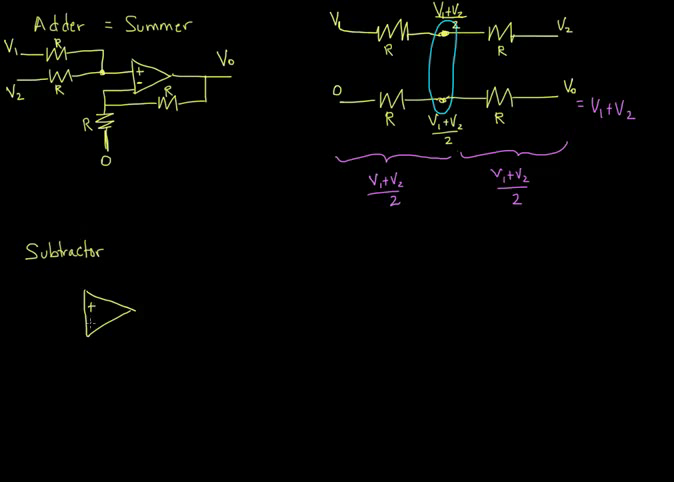 Adder = Summer
V₁ R
V₂ R
+
-
R
V₀
R
0
V₁ R (V₁+V₂)/2 R V₂
0 R (V₁+V₂)/2 R V₀ = V₁+V₂
(V₁+V₂)/2 (V₁+V₂)/2
Subtractor
+
-